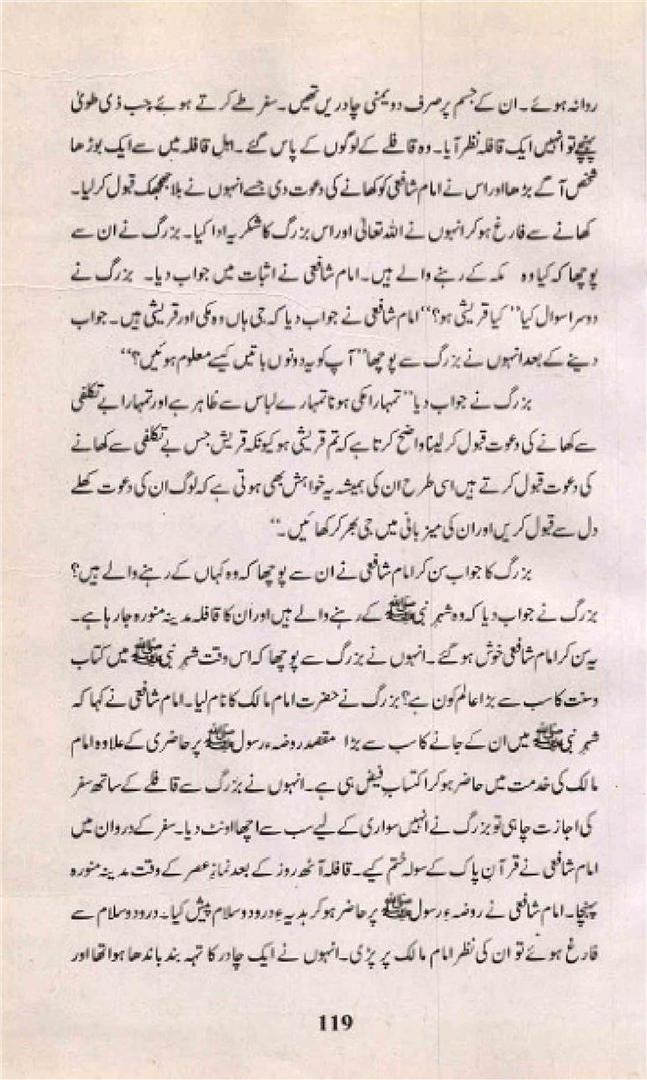 روانہ ہوئے۔ ان کے جسم پر صرف دو یمنی چادریں تھیں۔ سفر طے کرتے ہوئے جب ذی طویٰ
پہنچے تو انہیں ایک قافلہ نظر آیا۔ وہ قافلے کے لوگوں کے پاس گئے۔ اہلِ قافلہ میں سے ایک بوڑھا
شخص آگے بڑھا اور اس نے امام شافعی کو کھانے کی دعوت دی جسے انہوں نے بلا جھجھک قبول کر لیا۔
کھانے سے فارغ ہو کر انہوں نے اللہ تعالیٰ اور اس بزرگ کا شکریہ ادا کیا۔ بزرگ نے ان سے
پوچھا کہ کیا وہ مکہ کے رہنے والے ہیں۔ امام شافعی نے اثبات میں جواب دیا۔ بزرگ نے
دوسرا سوال کیا ’’کیا قریشی ہو؟‘‘ امام شافعی نے جواب دیا کہ جی ہاں وہ مکی اور قریشی ہیں۔ جواب
دینے کے بعد انہوں نے بزرگ سے پوچھا ’’آپ کو یہ دونوں باتیں کیسے معلوم ہوئیں؟‘‘
بزرگ نے جواب دیا ’’تمہارا مکی ہونا تمہارے لباس سے ظاہر ہے اور تمہارا بے تکلفی
سے کھانے کی دعوت قبول کر لینا واضح کرتا ہے کہ تم قریشی ہو کیونکہ قریش جس بے تکلفی سے کھانے
کی دعوت قبول کرتے ہیں اسی طرح ان کی ہمیشہ یہ خواہش بھی ہوتی ہے کہ لوگ ان کی دعوت کھلے
دل سے قبول کریں اور ان کی میزبانی میں جی بھر کر کھائیں۔‘‘
بزرگ کا جواب سن کر امام شافعی نے ان سے پوچھا کہ وہ کہاں کے رہنے والے ہیں؟
بزرگ نے جواب دیا کہ وہ شہرِ نبی ﷺ کے رہنے والے ہیں اور ان کا قافلہ مدینہ منورہ جا رہا ہے۔
یہ سن کر امام شافعی خوش ہو گئے۔ انہوں نے بزرگ سے پوچھا کہ اس وقت شہرِ نبی ﷺ میں کتاب
و سنت کا سب سے بڑا عالم کون ہے؟ بزرگ نے حضرت امام مالک کا نام لیا۔ امام شافعی نے کہا کہ
شہرِ نبی ﷺ میں ان کے جانے کا سب سے بڑا مقصد روضہء رسول ﷺ پر حاضری کے علاوہ امام
مالک کی خدمت میں حاضر ہو کر اکتسابِ فیض ہی ہے۔ انہوں نے بزرگ سے قافلے کے ساتھ سفر
کی اجازت چاہی تو بزرگ نے انہیں سواری کے لیے سب سے اچھا اونٹ دیا۔ سفر کے دروان میں
امام شافعی نے قرآنِ پاک کے سولہ ختم کیے۔ قافلہ آٹھ روز کے بعد نمازِ عصر کے وقت مدینہ منورہ
پہنچا۔ امام شافعی نے روضہء رسول ﷺ پر حاضر ہو کر ہدیہء درود و سلام پیش کیا۔ درود و سلام سے
فارغ ہوئے تو ان کی نظر امام مالک پر پڑی۔ انہوں نے ایک چادر کا تہہ بند باندھا ہوا تھا اور
119